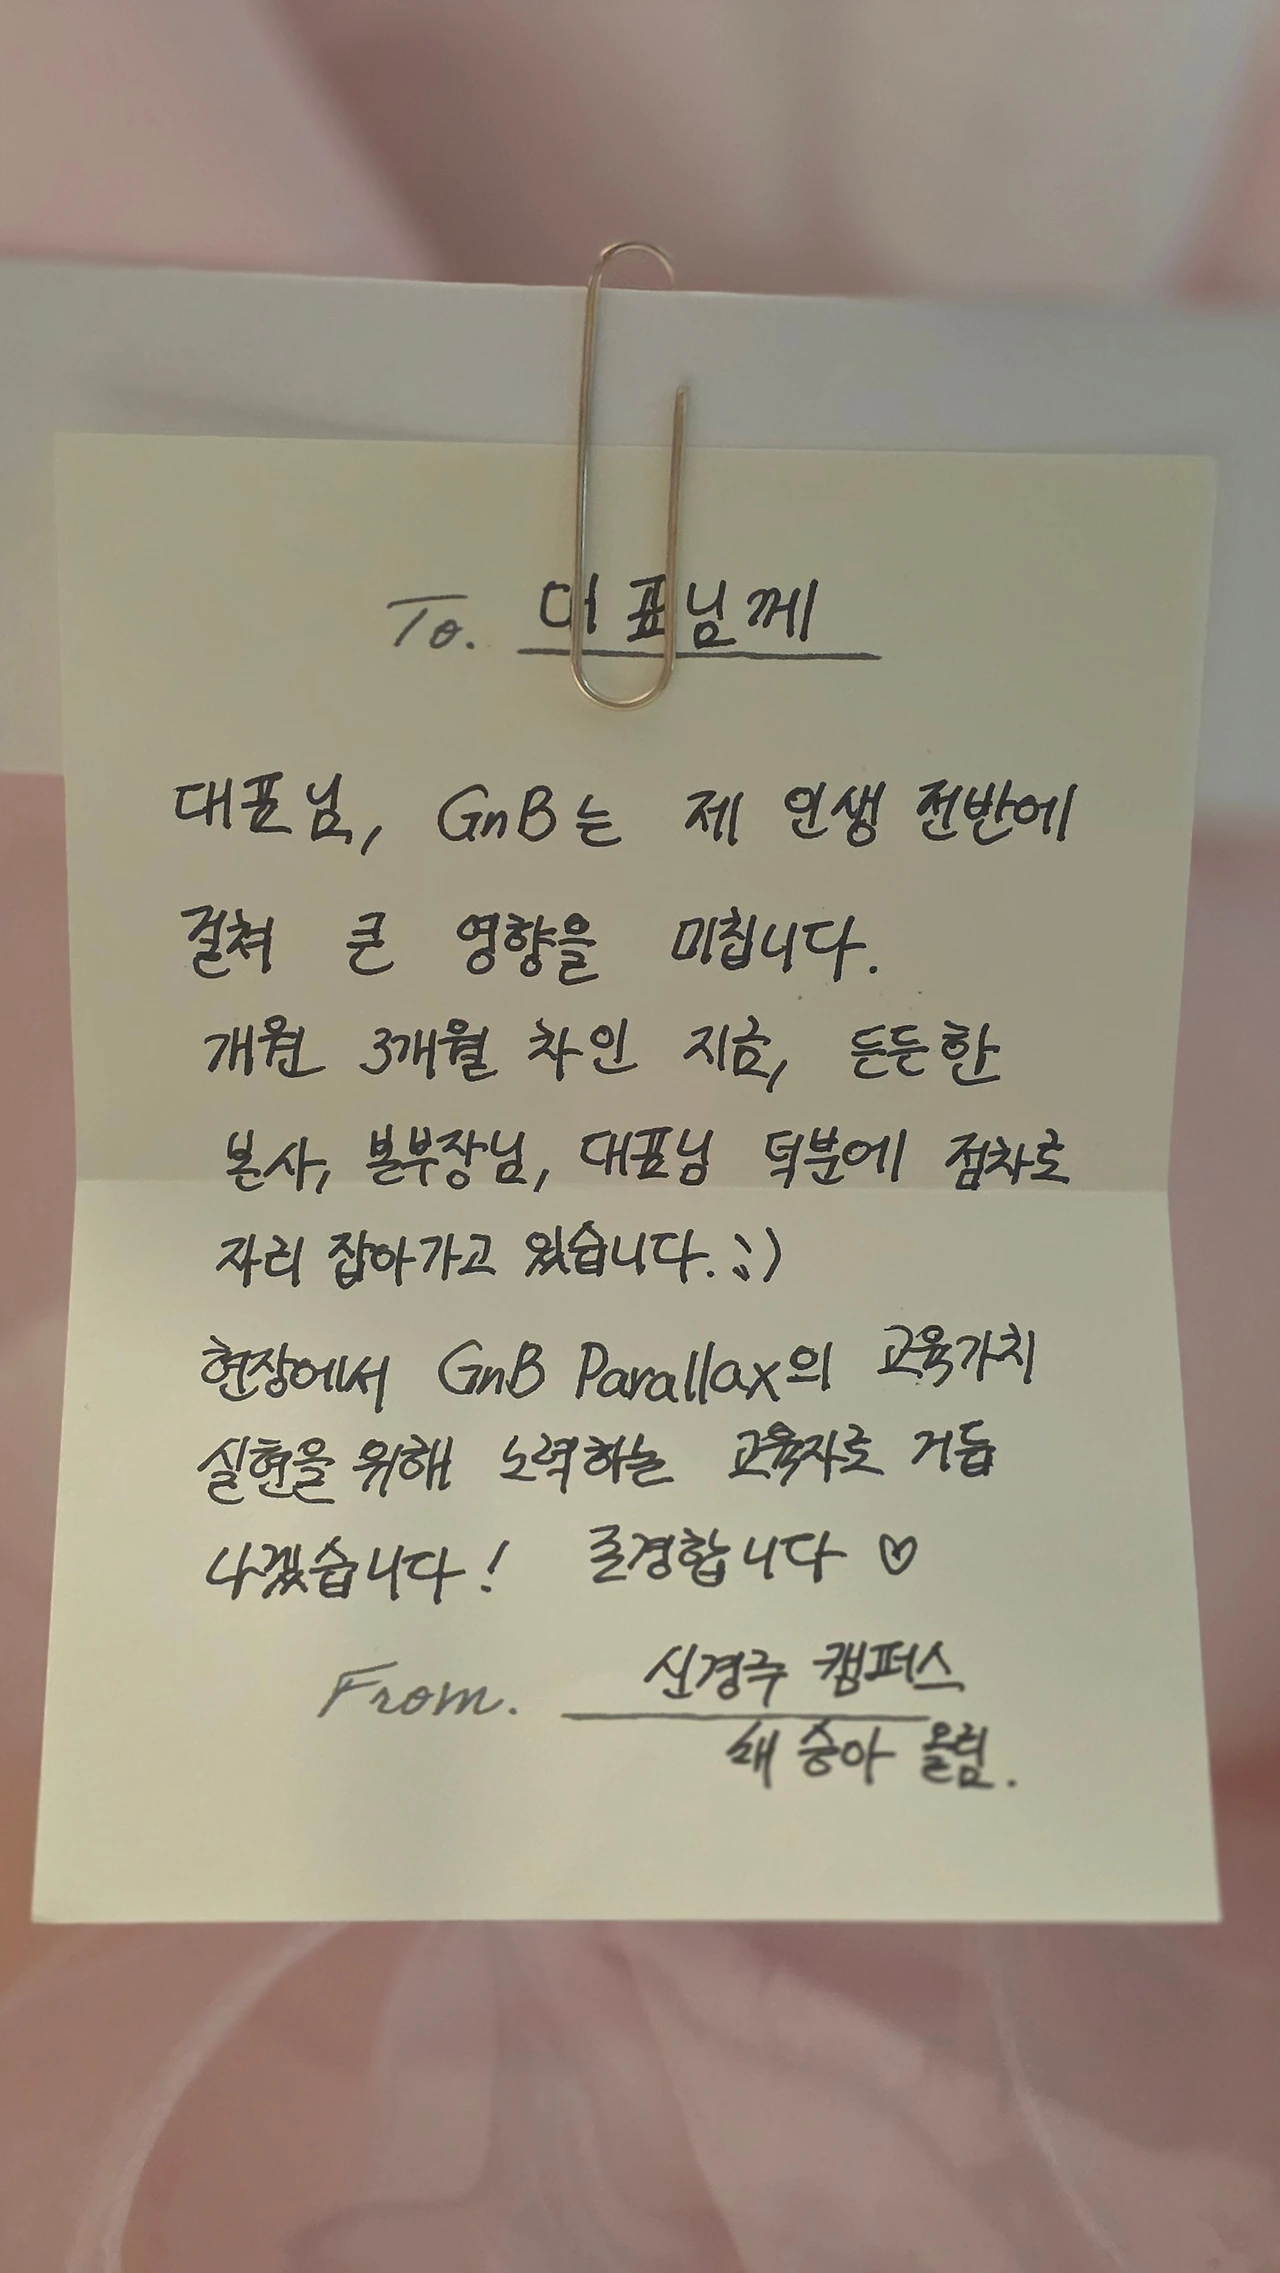 To. 대표님께
대표님, GnB는 제 인생 전반에
걸쳐 큰 영향을 미칩니다.
개원 3개월 차인 지금, 든든한
본사, 본부장님, 대표님 덕분에 점차로
자리 잡아가고 있습니다. :)
현장에서 GnB Parallax의 교육가치
실현을 위해 노력하는 교육자로 거듭
나겠습니다! 존경합니다 ♡
From. 신경주 캠퍼스
승아 올림.